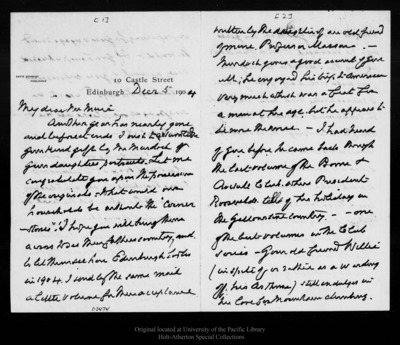 [1]
10 Castle Street
Edinburgh Decr 5 1904
My dear Mr Muir
Another year has nearly gone
and before it ends I want to
your kind gift by Mr Murdoch of
your daughters portraits. Let me
congratulate you upon the possession
of the originals. What would our
households be without the "corner
stones"? I hope you will bring them
across to see their fathers country, and
to let them see how Edinburgh looks
in 1904. I send by the same mail
a little volume for Mrs
[2]
written by the daughter of an old friend
of mine, Professor Masson. —
Murdoch gives a good account of you
all; he enjoyed his trip to America
very much which was a treat for
a man at his age, but he appears to
be none the worse. — I had heard
of you before he came back through
the last volume of the Boone &
Crockett Club, where President
Roosevelt tells of his holiday in
the Yellowstone country. — one
of the best volumes in the Club
series. — Your old friend Willie
(in spite of his asthma) still indulges in
his love for mountain climbing.
Original located at University of the Pacific Library
Holt-Atherton Special Collections